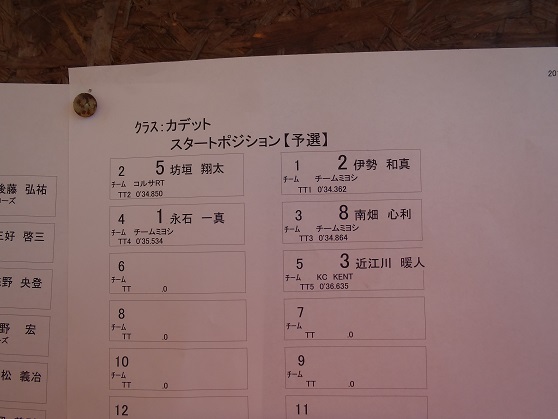 201
クラス:カデット
スタートポジション【予選】
2 5 坊垣 翔太
チーム コルサRT
TT2 0'34.850
1 2 伊勢 和真
チーム チームミヨシ
TT1 0'34.362
4 1 永石 一真
チーム チームミヨシ
TT4 0'35.534
3 8 南畑 心利
チーム チームミヨシ
TT3 0'34.864
6
チーム
TT .0
5 3 近江川 暖人
チーム KC KENT
TT5 0'36.635
8
チーム
TT .0
7
チーム
TT .0
10
チーム
TT .0
9
チーム
TT .0
12
11
後藤 弘祐
ーズ
三好 啓三
野 央登
野 宏
ーズ
松 義冶